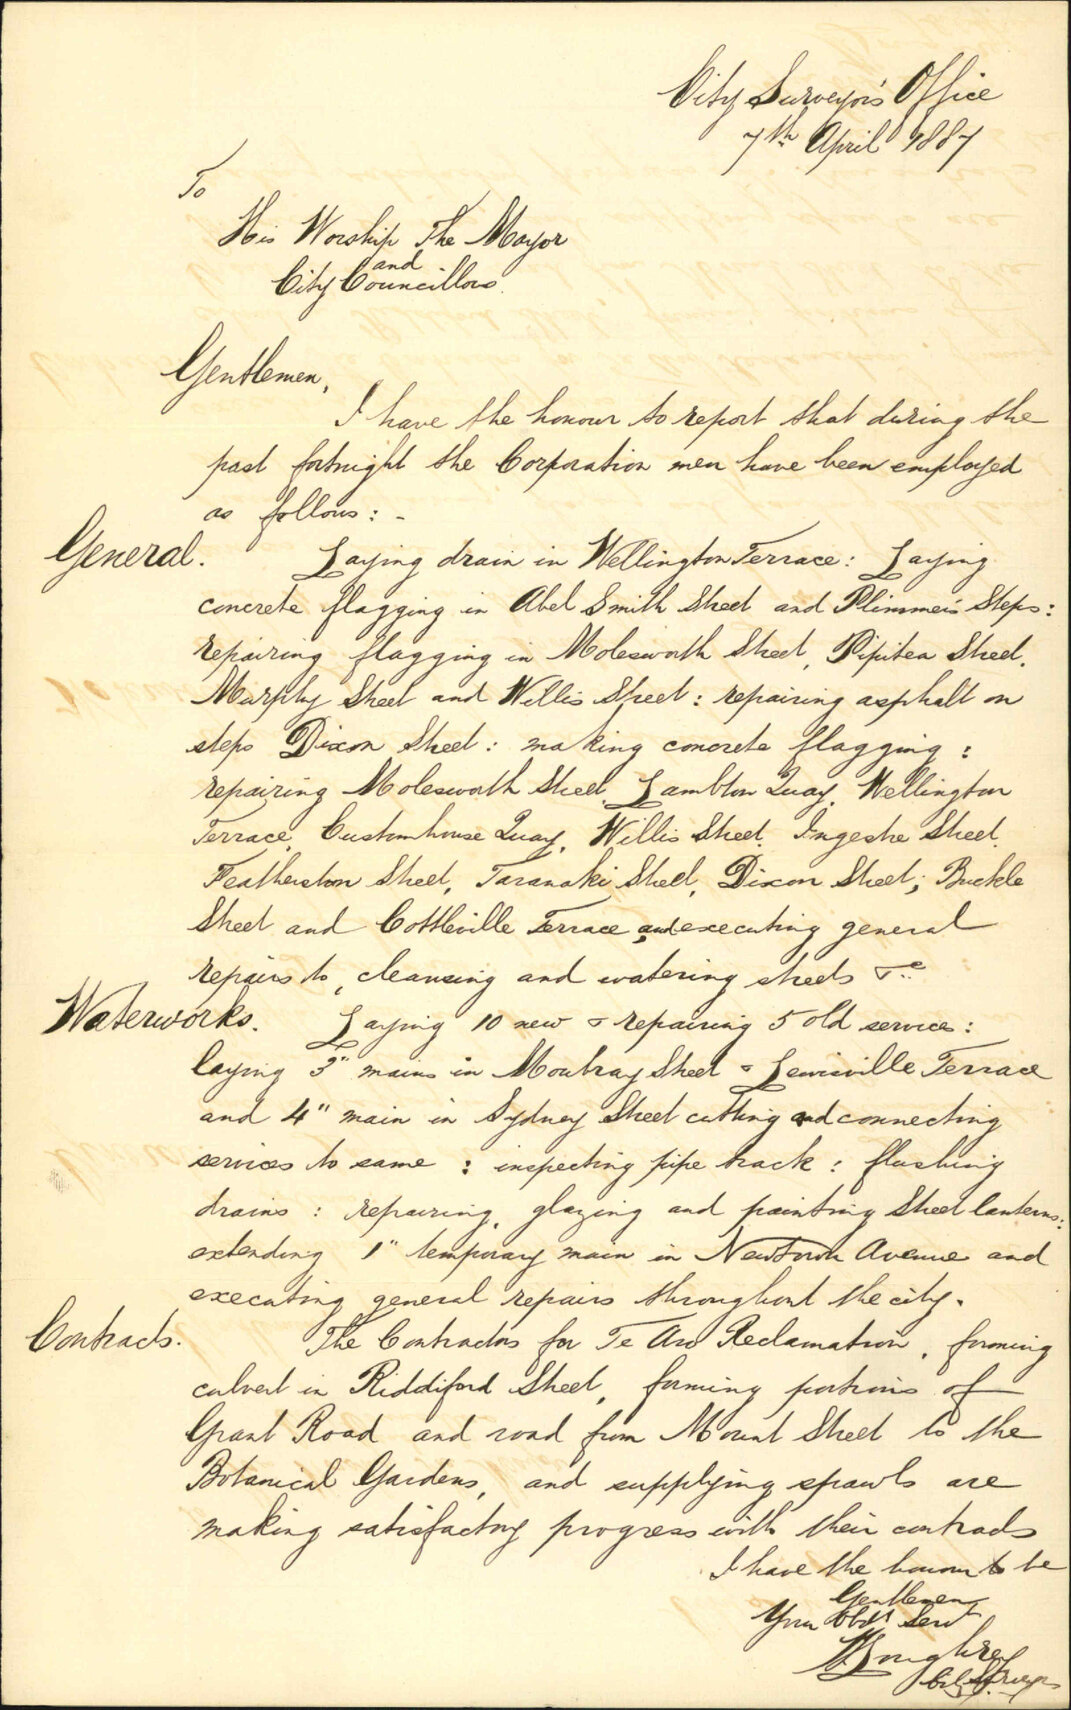 City Surveyor's Office
7th April 1887
To
His Worship The Mayor
and
City Councillors.
Gentlemen,
I have the honour to report that during the
past fortnight the Corporation men have been employed
as follows: -
General. Laying drain in Wellington Terrace: Laying
concrete flagging in Abel Smith Street and Plimmer's Steps:
repairing flagging in Molesworth Street, Pipitea Street,
Murphy Street and Willis Street: repairing asphalt on
steps Dixon Street: making concrete flagging:
repairing Molesworth Street, Lambton Quay, Wellington
Terrace, Customhouse Quay, Willis Street, Ingestre Street,
Featherston Street, Taranaki Street, Dixon Street, Buckle
Street and Cottleville Terrace and executing general
repairs to, cleansing and watering streets &c
Waterworks. Laying 10 new & repairing 5 old services:
laying 3" mains in Moubray Street & Lewisville Terrace
and 4" main in Sydney Street cutting and connecting
services to same: inspecting pipe track: flushing
drains: repairing, glazing and painting Street lanterns:
extending 1" temporary main in Newtown Avenue and
executing general repairs throughout the city.
Contracts. The Contractors for Te Aro Reclamation, forming
culvert in Riddiford Street, forming portions of
Grant Road and road from Mount Street to the
Botanical Gardens, and supplying spawls are
making satisfactory progress with their contracts
I have the honour to be
Gentlemen
Your Obdt Servt
City Surveyor